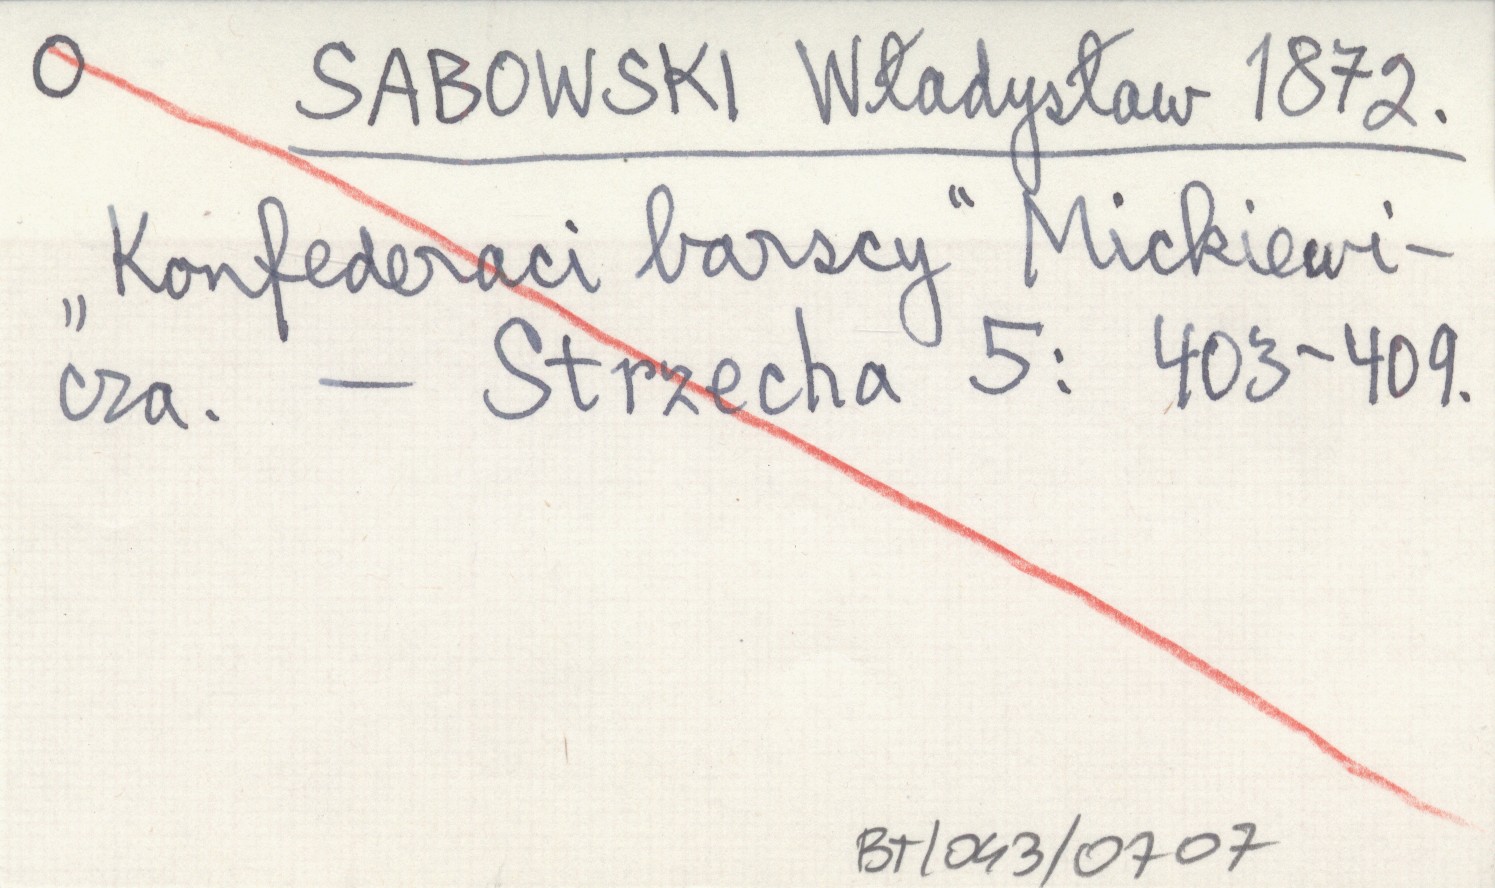 O SABOWSKI Władysław 1872.
„Konfederaci barscy“ Mickiewi-
cza. — Strzecha 5: 403-409.
BT/043/0707